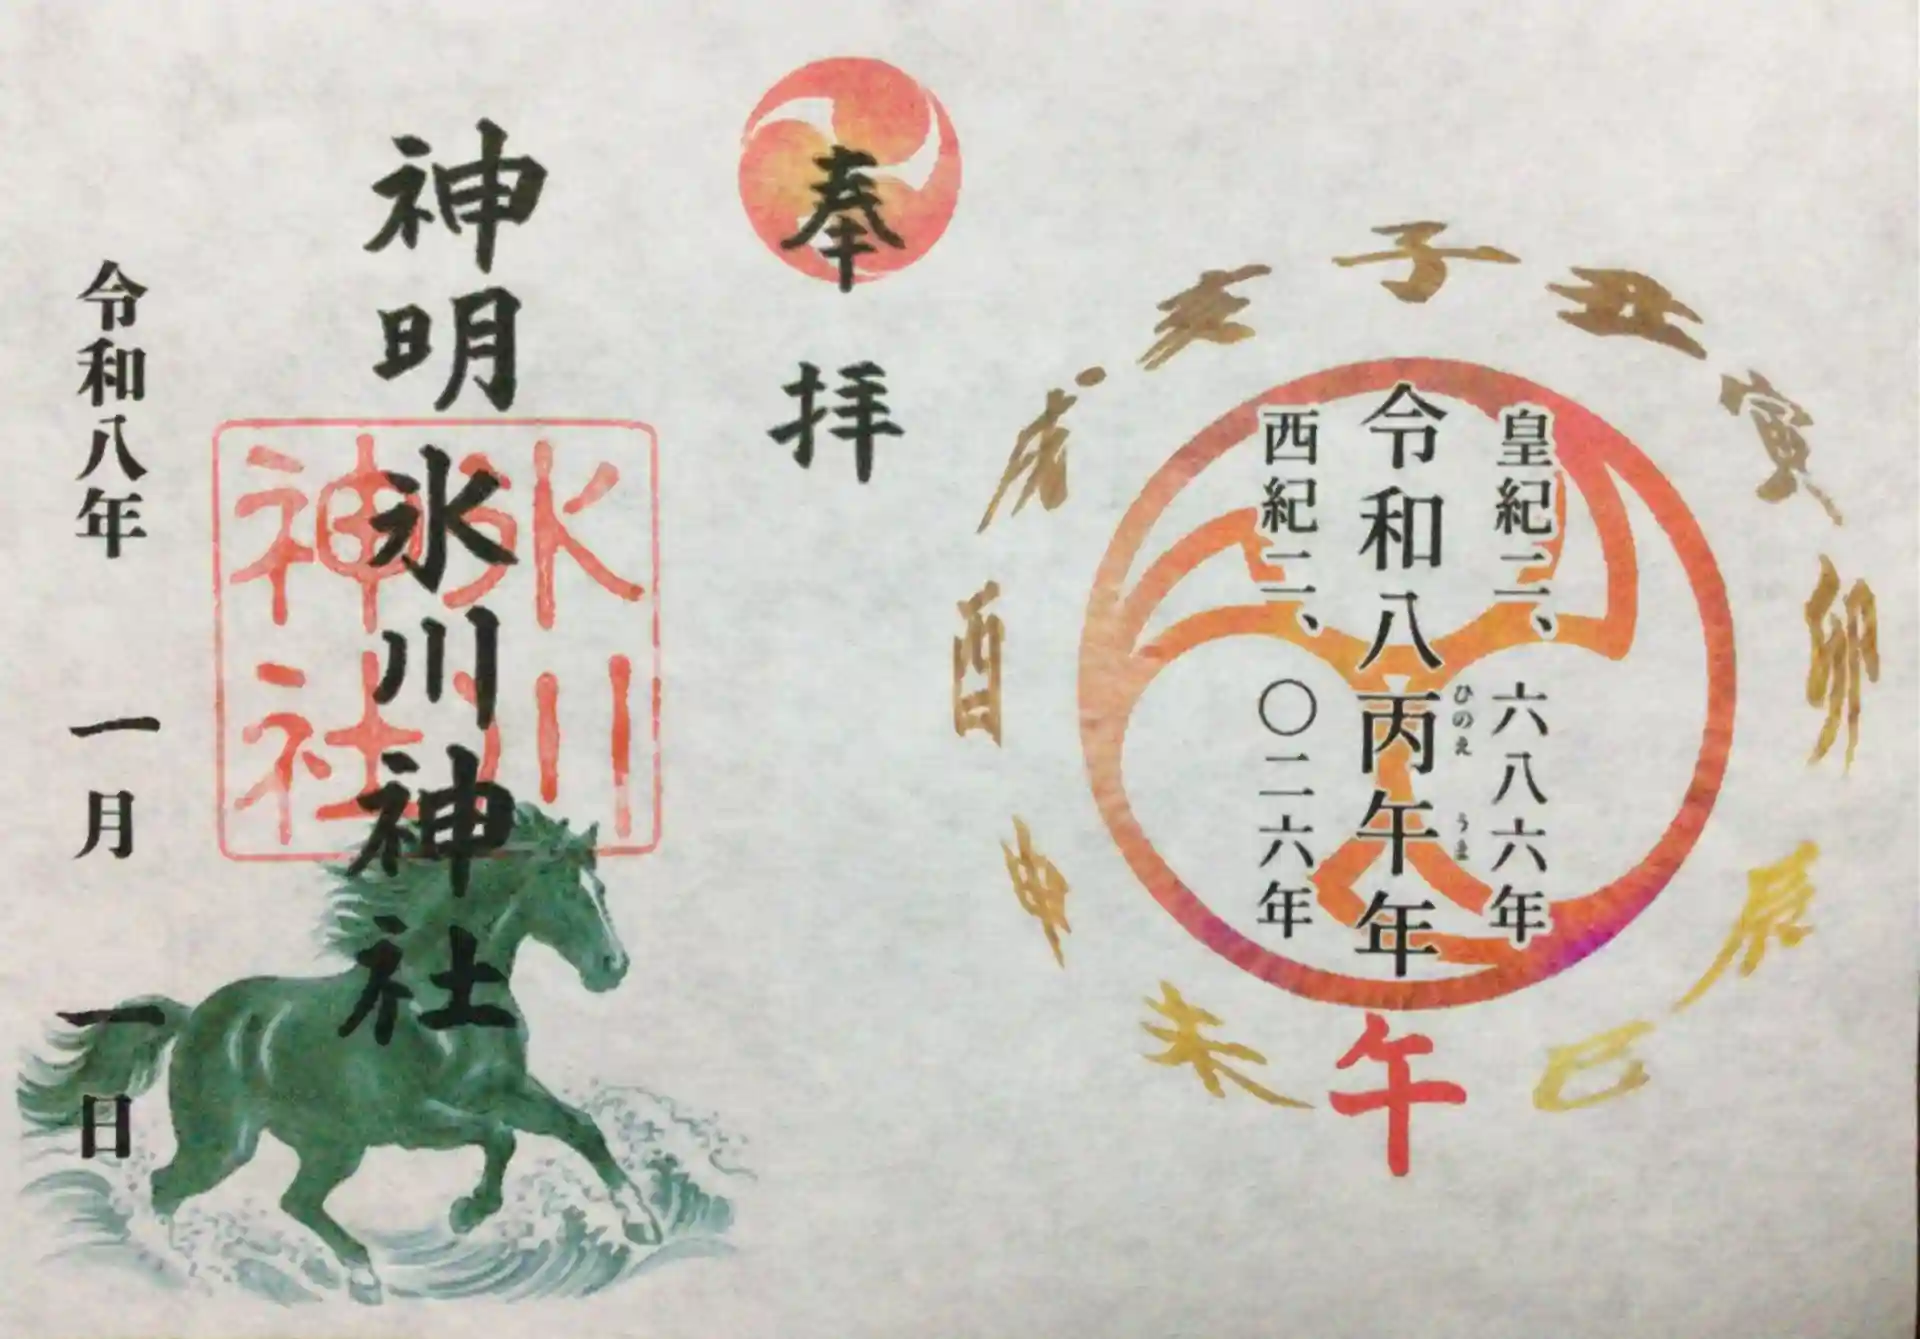 子
丑
寅
卯
辰
巳
午
未
申
酉
戌
亥
皇紀二、六八六年
令和八丙午年
ひのえ うま
西紀二、〇二六年
奉拝
神明氷川神社
氷川
神社
令和八年 一月 一日